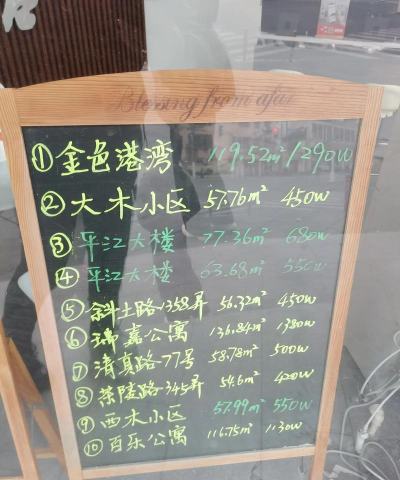 Blessing from afar
① 金色港湾 119.52m² / 1290W
② 大木小区 57.76m² 450W
③ 平江大楼 77.36m² 680W
④ 平江大楼 63.68m² 550W
⑤ 斜土路1358弄 56.32m² 450W
⑥ 瑞嘉公寓 136.84m² 1380W
⑦ 清真路-77号 58.78m² 500W
⑧ 茶陵路-345弄 54.6m² 420W
⑨ 西木小区 57.99m² 550W
⑩ 百乐公寓 116.75m² 1130W